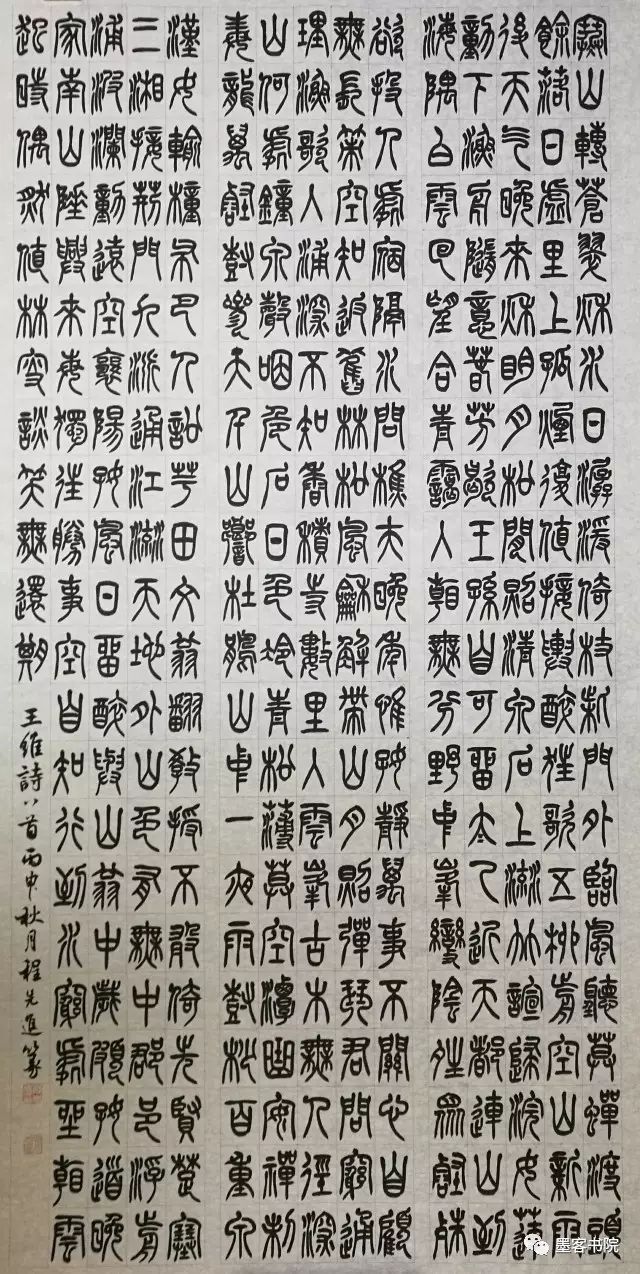 寒山轉蒼翠秋水日潺湲倚杖柴門外臨風聽暮蟬渡頭
餘落日墟里上孤煙復值接輿醉狂歌五柳前空山新雨
後天氣晚來秋明月松間照清泉石上流竹喧歸浣女蓮
動下漁舟隨意春芳歇王孫自可留太乙近天都連山到
海隅白雲回望合青靄入看無分野中峯變陰晴眾壑殊
欲投人處宿隔水問樵夫晚年惟好靜萬事不關心自顧
無長策空知返舊林松風龢解帶山月照彈琴君問窮通
理漁歌入浦深不知香積寺數里入雲峯古木無人徑深
山何處鐘泉聲咽危石日色冷青松薄暮空潭曲安禪制
毒龍萬壑樹參天千山響杜鵑山中一夜雨樹杪百重泉
漢女輸橦布巴人訟芋田文翁翻教授不敢倚先賢楚塞
三湘接荊門九派通江流天地外山色有無中郡邑浮前
浦波瀾動遠空襄陽好風日留醉與山翁中歲頗好道晚
家南山陲興來每獨往勝事空自知行到水窮處坐看雲
起時偶然值林叟談笑無還期
王維詩八首丙申秋月程先進篆
墨客书院